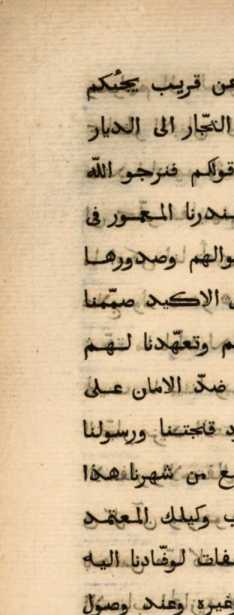 عن قريب يجئكم
التجّار الى الديار
قولكم فنرجو اللّه
بندرنا المعمور فى
والهم وصدورها
الاكيد صمّمنا
وتعهّدنا لهم
ضدّ الامان على
ورسولنا
من شهرنا هذا
وكيلك المعتمد
لوفّادنا اليه
غيره وعند وصول